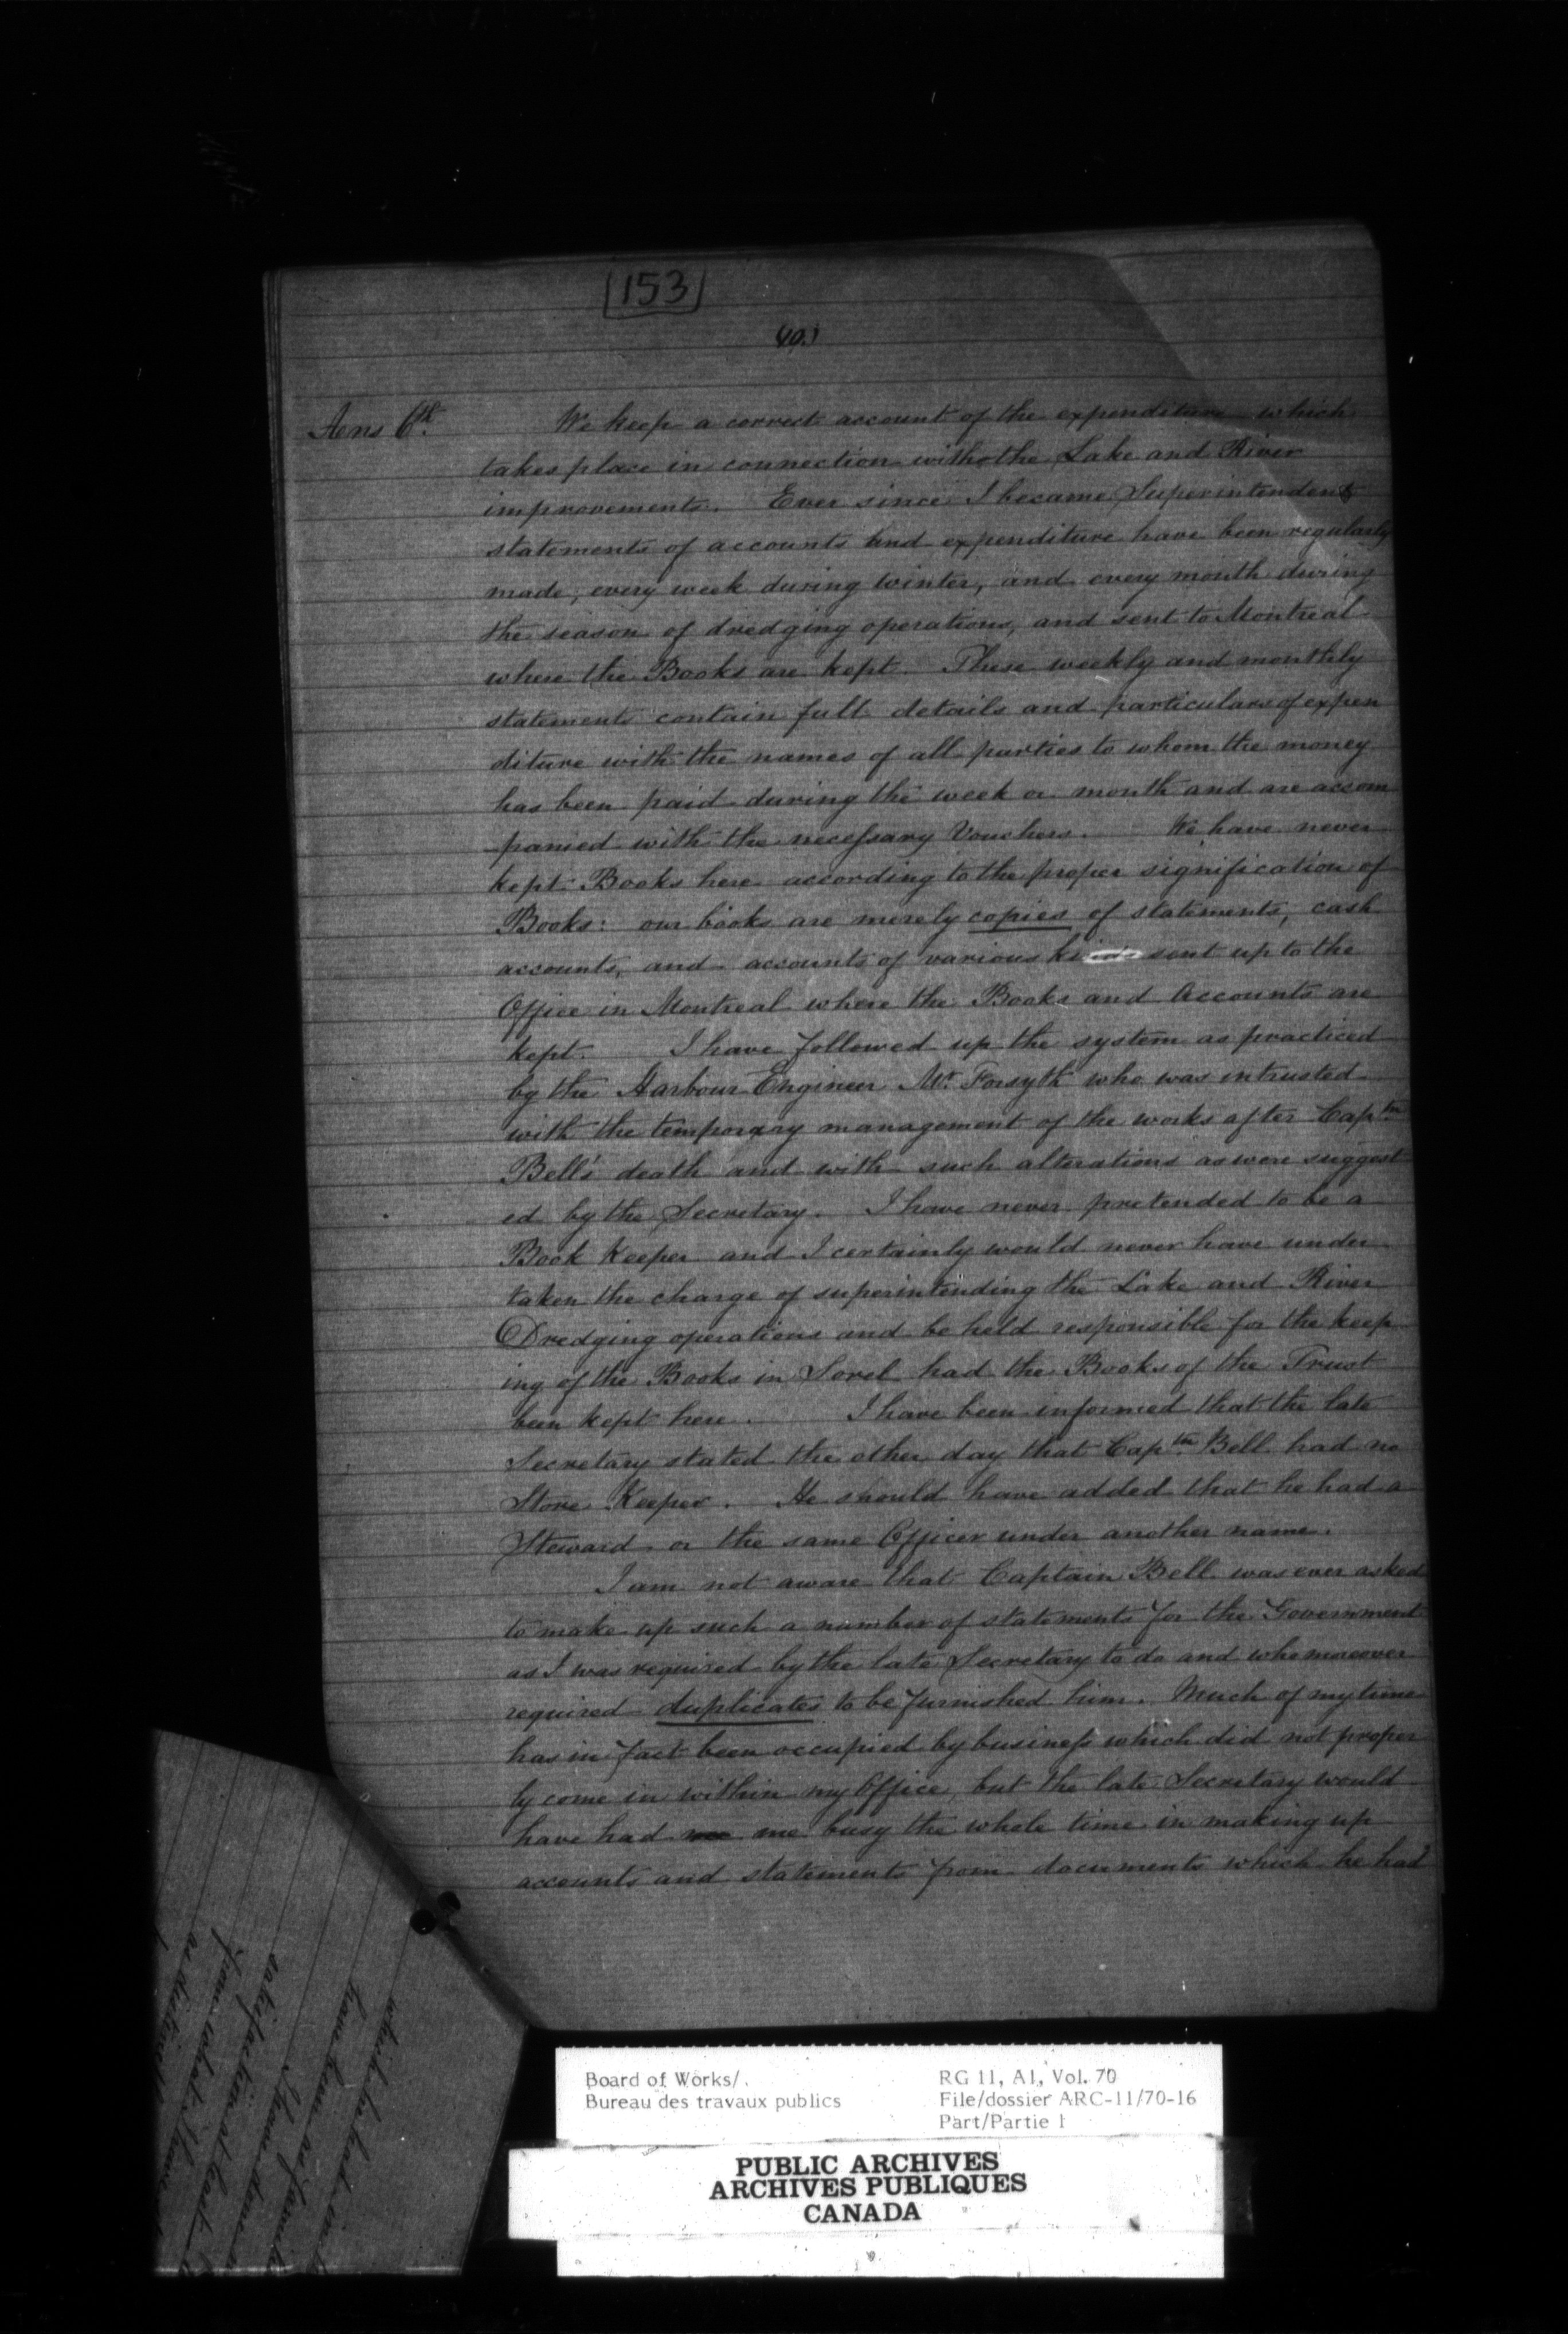 153
Ans 6th.
We keep a correct account of the expenditure which
takes place in connection with the Lake and River
improvements. Ever since I became Superintendent
statements of accounts and expenditure have been regularly
made, every week during winter, and every month during
the season of dredging operations, and sent to Montreal
where the Books are kept. These weekly and monthly
statements contain full details and particulars of expen
diture with the names of all parties to whom the money
has been paid during the week or month and are accom
panied with the necessary Vouchers. We have never
kept Books here according to the proper signification of
Books: our books are merely copies of statements, cash
accounts, and accounts of various kinds sent up to the
Office in Montreal where the Books and Accounts are
kept. I have followed up the system as practiced
by the Harbour Engineer Mr. Forsyth who was intrusted
with the temporary management of the works after Captn
Bell's death and with such alterations as were suggest
ed by the Secretary. I have never pretended to be a
Book Keeper and I certainly would never have under
taken the charge of superintending the Lake and River
Dredging operations and be held responsible for the keep
ing of the Books in Sorel had the Books of the Trust
been kept here. I have been informed that the late
Secretary stated the other day that Captn Bell had no
Store Keeper. He should have added that he had a
Steward or the same Officer under another name.
I am not aware that Captain Bell was ever asked
to make up such a number of statements for the Government
as I was required by the late Secretary to do and who moreover
required duplicates to be furnished him. Much of my time
has in fact been occupied by business which did not proper
ly come in within my Office, but the late Secretary would
have had me busy the whole time in making up
accounts and statements from documents which he had
Board of Works/
Bureau des travaux publics
RG 11, A1, Vol. 70
File/dossier ARC-11/70-16
Part/Partie 1
PUBLIC ARCHIVES
ARCHIVES PUBLIQUES
CANADA